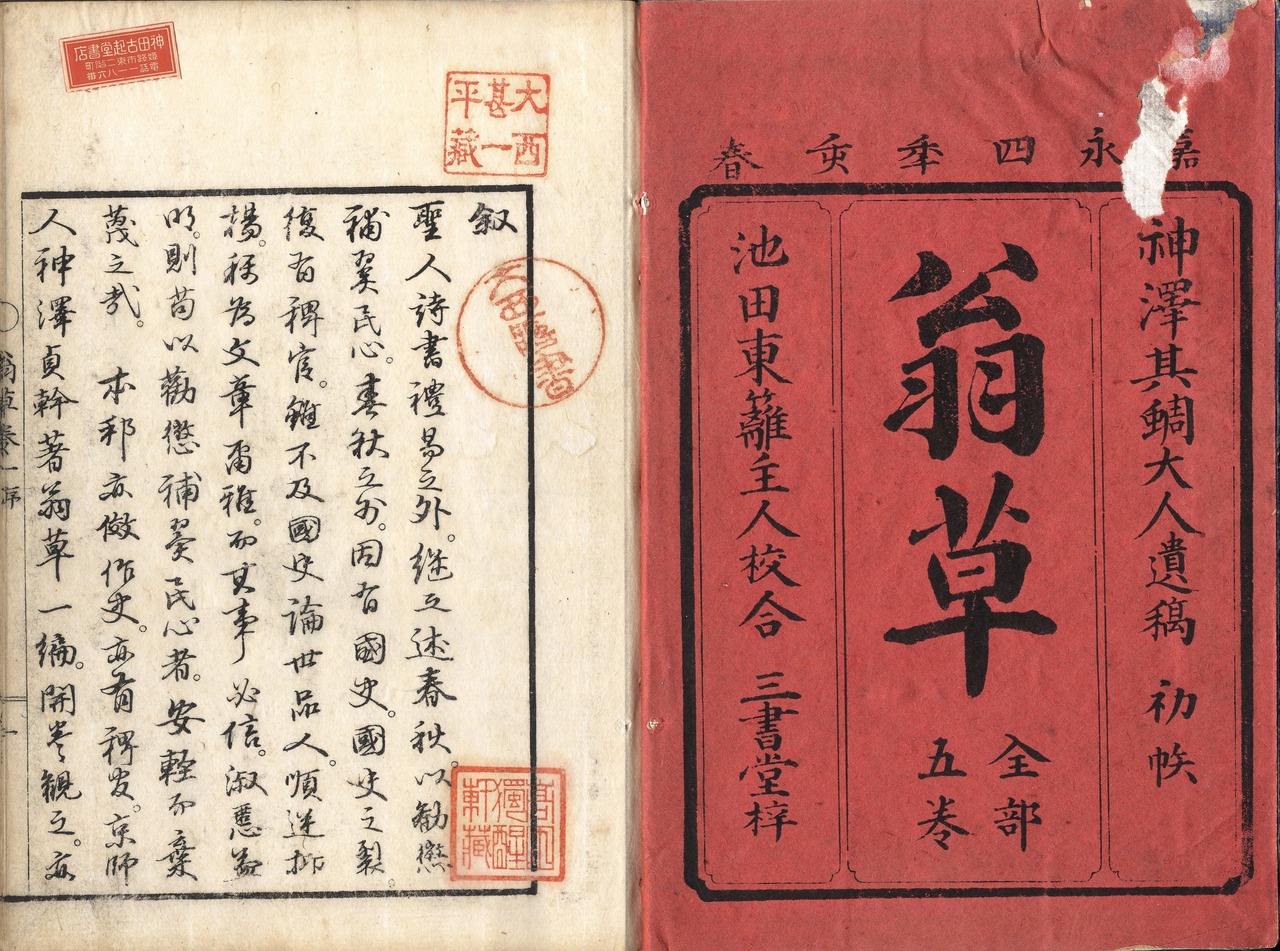 嘉永四秊亥春
神澤其蜩大人遺稿 初帙
翁草
全部
五巻
池田東籬主人校合 三書堂梓
神田古起堂書店
姫路市東二階町
電話一一八六番
大西
甚一
平藏
叙
聖人詩書禮易之外。継之述春秋。以勧懲
補翼民心。春秋之外。因有國史。國史之裂
復有稗官。雖不及國史論世品人。順逆抑
揚。称為文章爾雅。而其事必信。淑慝
明。則苟以勸懲補翼民心者。安輕而棄
蔑之哉。本邦亦倣作史。亦有稗官。京師
人神澤貞幹著翁草一編。開巻観之。亦
獨醒
軒藏
翁草巻一序